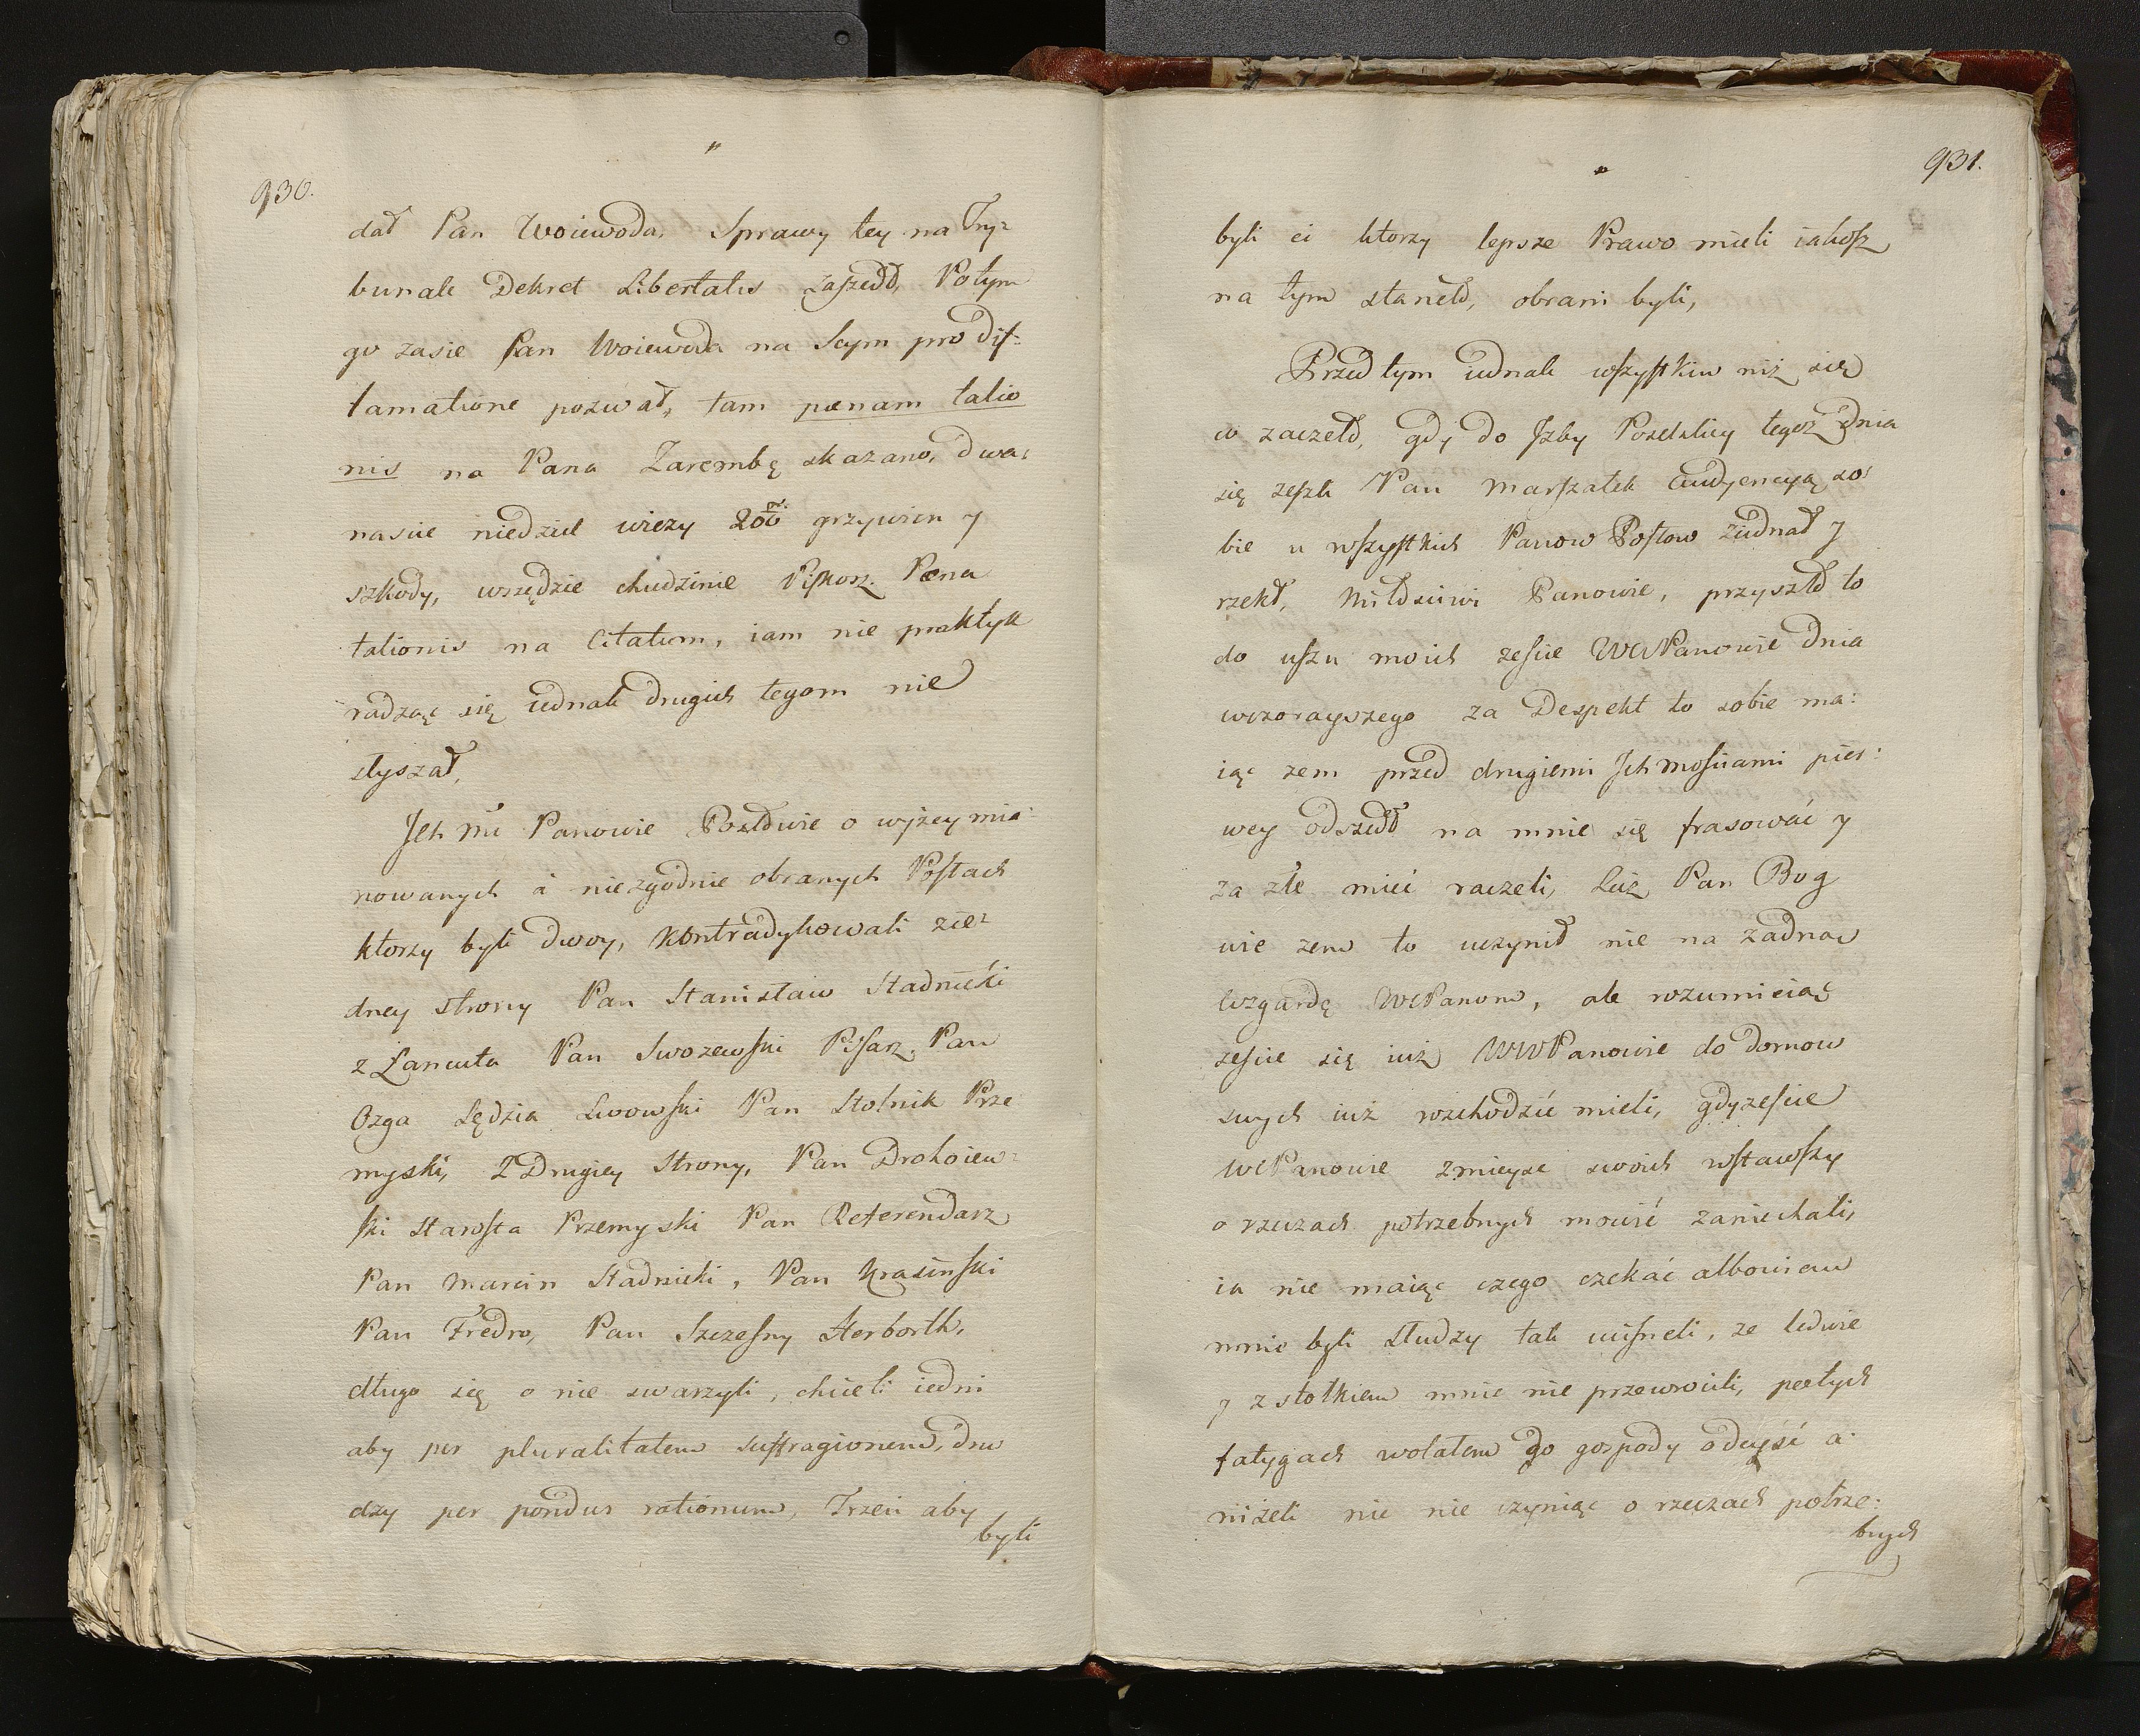 930.
dał Pan Woiewoda. Sprawy tey na Try=
bunale Dekret Libertatis zaszedł, Potym
go zasie Pan Woiewoda na Seym pro dif=
tamatione pozwał, tam pœnam talio
nis na Pana Zarembę skazano, dwa=
nascie niedziel wiezy 200 grzywien y
szkody, wszędzie chudzinie Piskorz. Pœna
talionis na Citatum, iam nie praktyk
radząc się iednak drugich tegom nie
słyszał,
Ich Mć Panowie Posłowie o wyżey mia=
nowanych á niezgodnie obranych Posłach
ktorzy byli dwoy, kontradykowali zie=
dney strony Pan Stanisław Stadnicki
z Łancuta Pan Swoszewski Pisarz, Pan
Ozga Sędzia Lwowski Pan Stolnik Prze
myski, Z Drugiey Strony, Pan Drohoiew=
ski Starosta Przemyski Pan Referendarz
Pan Marcin Stadnicki, Pan Krasinski
Pan Fredro, Pan Szczesny Herborth.
długo się o nie swarzyli, chcieli iedni
aby per pluralitatem suffragionem, dru
dzy per pondus rationum, Trzeci aby
byli
931.
byli ci ktorzy lepsze Prawo mieli iakosz
na tym staneło, obrani byli,
Przed tym iednak wszystkim niż się
co zaczeło, gdy do Izby Poselskiey tegoż Dnia
się zeszli Pan Marszałek Audyencyą so=
bie u wszystkich Panow Posłow ziednał y
rzekł, Miłosciwi Panowie, przyszło to
do uszu moich zescie WMPanowie Dnia
wczorayszego za Despekt to sobie ma=
iąc zem przed drugiemi Ich Mosciami pier=
wey odszedł na mnie się frasować y
za złe mieć raczeli, Lecz Pan Bog
wie zem to uczynił nie na zadną
Wzgardę WMPanom, ale rozumieiąc
zescie się iuż WMPanowie do domow
swych iuż rozchodzić mieli, gdyzescie
WMPanowie zmieysc swoich wstawszy
o rzeczach potrzebnych mowić zaniechali,
ia nie maiąc czego czekać albowiem
mnie byli słudzy tak ucisneli, ze ledwie
y z stołkiem mnie nie przewrocili, po tych
fatygach wolałem do gospody odeyść a=
niżeli nic nie czyniąc o rzeczach potrze=
bnych